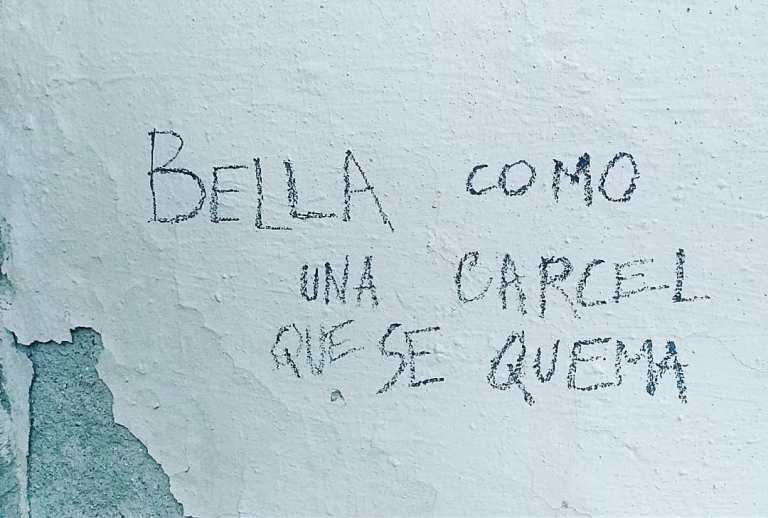 BELLA COMO
UNA CARCEL
QUE SE QUEMA